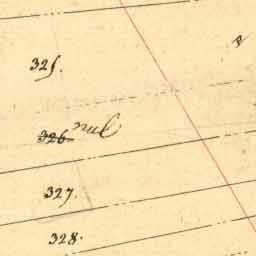 325.
326 nul
327.
328.